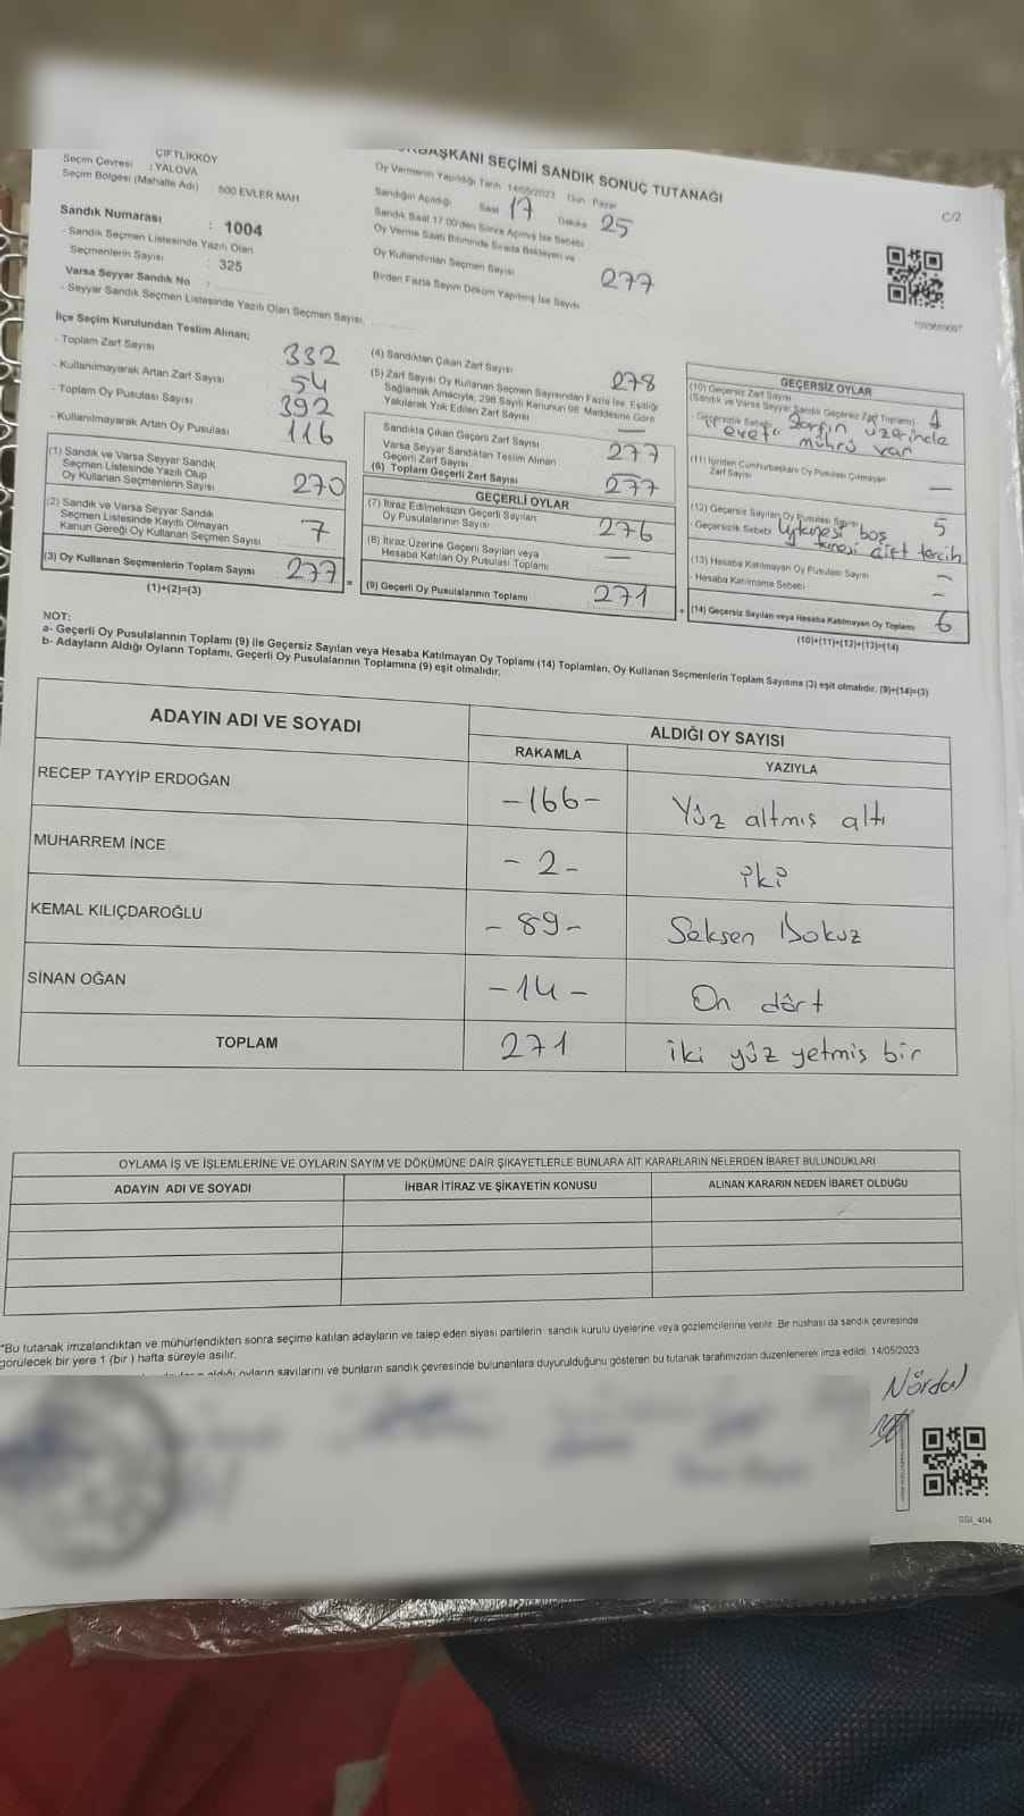 ÇİFTLİKKÖY
Seçim Çevresi : YALOVA
Seçim Bölgesi (Mahalle Adı) 500 EVLER MAH
Sandık Numarası : 1004
- Sandık Seçmen Listesinde Yazılı Olan
Seçmenlerin Sayısı : 325
Varsa Seyyar Sandık No :
- Seyyar Sandık Seçmen Listesinde Yazılı Olan Seçmen Sayısı
BAŞKANI SEÇİMİ SANDIK SONUÇ TUTANAĞI
Oy Vermenin Yapıldığı Tarih 14/05/2023 Gün Pazar
Sandığın Açıldığı Saat 17 Dakika 25
Sandık Saat 17.00'den Sonra Açılmış İse Sebebi
Oy Verme Saati Bitiminde Sırada Bekleyen ve
Oy Kullandırılan Seçmen Sayısı 277
Birden Fazla Sayım Döküm Yapılmış İse Sayısı
C/2
İlçe Seçim Kurulundan Teslim Alınan;
- Toplam Zarf Sayısı 332
- Kullanılmayarak Artan Zarf Sayısı 54
- Toplam Oy Pusulası Sayısı 392
- Kullanılmayarak Artan Oy Pusulası 116
(1) Sandık ve Varsa Seyyar Sandık
Seçmen Listesinde Yazılı Olup
Oy Kullanan Seçmenlerin Sayısı 270
(2) Sandık ve Varsa Seyyar Sandık
Seçmen Listesinde Kayıtlı Olmayan
Kanun Gereği Oy Kullanan Seçmen Sayısı 7
(3) Oy Kullanan Seçmenlerin Toplam Sayısı 277
(1)+(2)=(3)
(4) Sandıktan Çıkan Zarf Sayısı 278
(5) Zarf Sayısı Oy Kullanan Seçmen Sayısından Fazla İse, Eşitliği
Sağlamak Amacıyla, 298 Sayılı Kanunun 98. Maddesine Göre
Yakılarak Yok Edilen Zarf Sayısı —
Sandıkta Çıkan Geçerli Zarf Sayısı 277
Varsa Seyyar Sandıktan Teslim Alınan
Geçerli Zarf Sayısı
(6) Toplam Geçerli Zarf Sayısı 277
GEÇERLİ OYLAR
(7) İtiraz Edilmeksizin Geçerli Sayılan
Oy Pusulalarının Sayısı 276
(8) İtiraz Üzerine Geçerli Sayılan veya
Hesaba Katılan Oy Pusulası Toplamı —
(9) Geçerli Oy Pusulalarının Toplamı 271
GEÇERSİZ OYLAR
(10) Geçersiz Zarf Sayısı
(Sandık ve Varsa Seyyar Sandık Geçersiz Zarf Toplamı) 1
- Geçersizlik Sebebi Zarfın üzerinde
evet mührü var
(11) İçinden Cumhurbaşkanı Oy Pusulası Çıkmayan
Zarf Sayısı —
(12) Geçersiz Sayılan Oy Pusulası Sayısı 5
- Geçersizlik Sebebi boş
tanesi çift tercih
(13) Hesaba Katılmayan Oy Pusulası Sayısı —
- Hesaba Katılmama Sebebi —
(14) Geçersiz Sayılan veya Hesaba Katılmayan Oy Toplamı 6
(10)+(11)+(12)+(13)=(14)
NOT:
a- Geçerli Oy Pusulalarının Toplamı (9) ile Geçersiz Sayılan veya Hesaba Katılmayan Oy Toplamı (14) Toplamları, Oy Kullanan Seçmenlerin Toplam Sayısına (3) eşit olmalıdır. (9)+(14)=(3)
b- Adayların Aldığı Oyların Toplamı, Geçerli Oy Pusulalarının Toplamına (9) eşit olmalıdır.
ADAYIN ADI VE SOYADI
ALDIĞI OY SAYISI
RAKAMLA YAZIYLA
RECEP TAYYİP ERDOĞAN -166- Yüz altmış altı
MUHARREM İNCE - 2 - iki
KEMAL KILIÇDAROĞLU - 89 - Seksen Dokuz
SİNAN OĞAN - 14 - On dört
TOPLAM 271 iki yüz yetmis bir
OYLAMA İŞ VE İŞLEMLERİNE VE OYLARIN SAYIM VE DÖKÜMÜNE DAİR ŞİKAYETLERLE BUNLARA AİT KARARLARIN NELERDEN İBARET BULUNDUKLARI
ADAYIN ADI VE SOYADI İHBAR İTİRAZ VE ŞİKAYETİN KONUSU ALINAN KARARIN NEDEN İBARET OLDUĞU
*Bu tutanak imzalandıktan ve mühürlendikten sonra seçime katılan adayların ve talep eden siyasi partilerin sandık kurulu üyelerine veya gözlemcilerine verilir. Bir nushası da sandık çevresinde
görülecek bir yere 1 (bir) hafta süreyle asılır.
aldığı oyların sayılarını ve bunların sandık çevresinde bulunanlara duyurulduğunu gösteren bu tutanak tarafımızdan düzenlenerek imza edildi. 14/05/2023